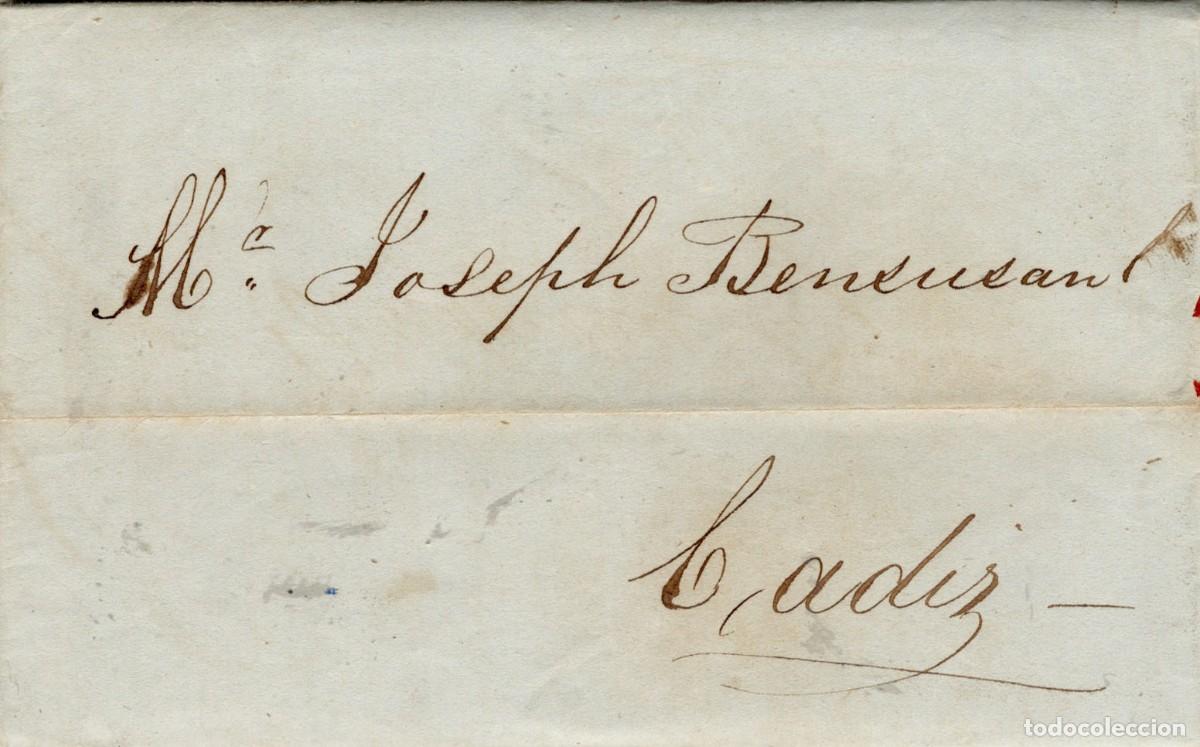 Mr. Joseph Bensusan
Cadiz —
todocoleccion